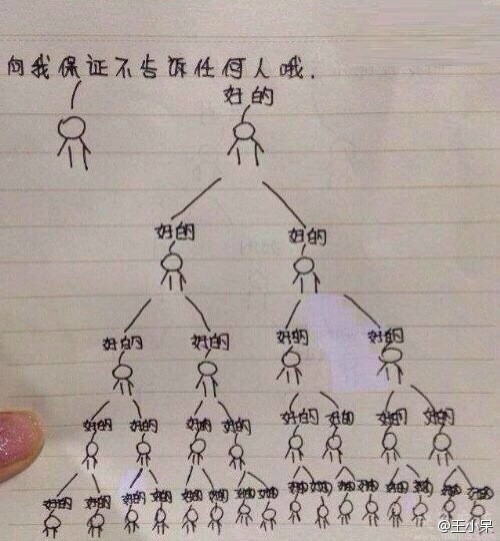 向我保证不告诉任何人哦.
好的
好的 好的
好的 好的 好的 好的
好的 好的 好的 好的 好的 好的 好的 好的
好的 好的 好的 好的 好的 好的 好的 好的 好的 好的 好的 好的 好的 好的 好的 好的
@王小呆